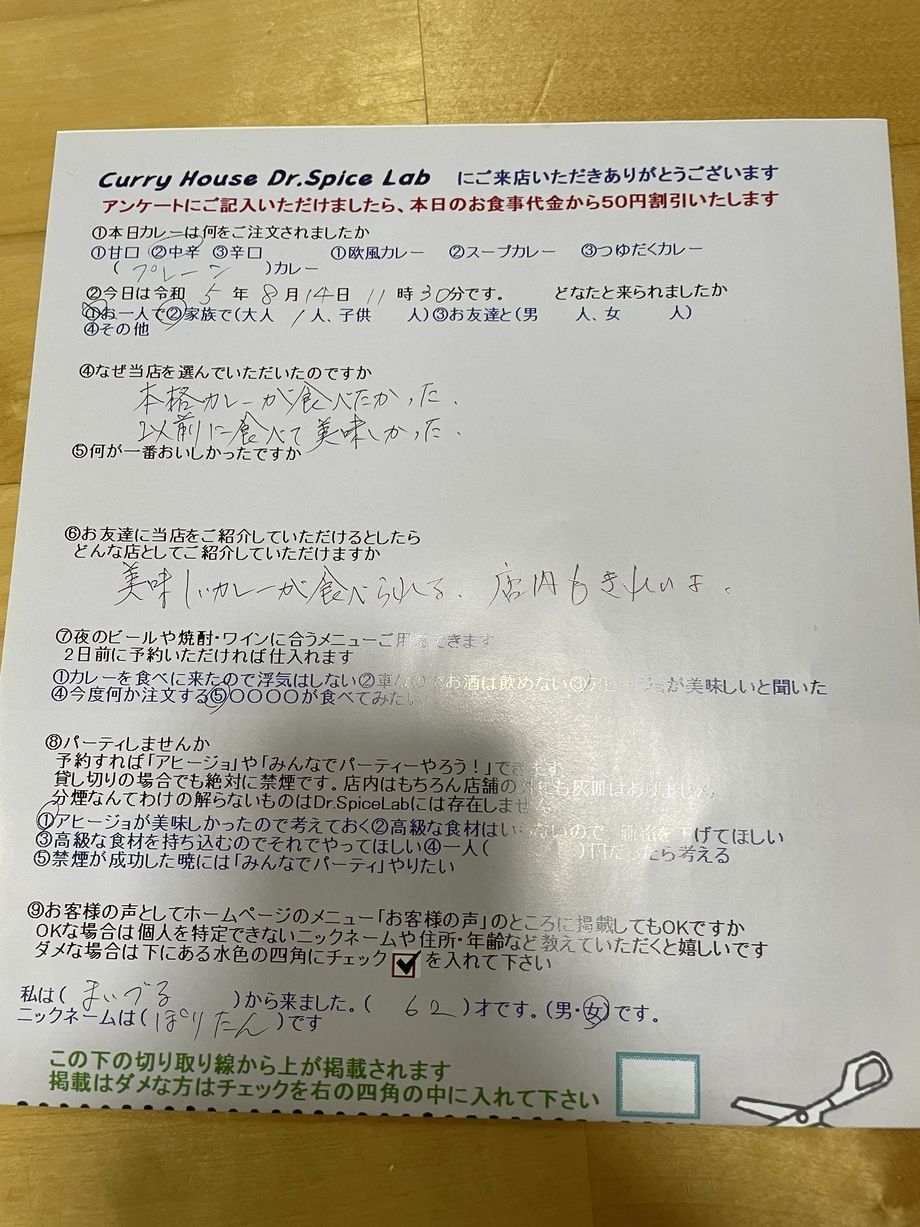 Curry House Dr.Spice Lab にご来店いただきありがとうございます
アンケートにご記入いただけましたら、本日のお食事代金から50円割引いたします
①本日カレーは何をご注文されましたか
①甘口 ②中辛 ③辛口 ①欧風カレー ②スープカレー ③つゆだくカレー
(プレーン)カレー
②今日は令和 5 年 8 月 14 日 11 時 30 分です。 どなたと来られましたか
①お一人で②家族で(大人 1 人、子供 人)③お友達と(男 人、女 人)
④その他
④なぜ当店を選んでいただいたのですか
本格カレーが食べたかった.
以前に食べて美味しかった.
⑤何が一番おいしかったですか
⑥お友達に当店をご紹介していただけるとしたら
どんな店としてご紹介していただけますか
美味しいカレーが食べられる、店内もきれいよ、
⑦夜のビールや焼酎・ワインに合うメニューご用意できます
2日前に予約いただければ仕入れます
①カレーを食べに来たので浮気はしない②車 お酒は飲めない③アヒージョが美味しいと聞いた
④今度何か注文する⑤〇〇〇〇が食べてみたい
⑧パーティしませんか
予約すれば「アヒージョ」や「みんなでパーティーやろう!」できます
貸し切りの場合でも絶対に禁煙です。店内はもちろん店舗の外にも灰皿はありません。
分煙なんてわけの解らないものはDr.SpiceLabには存在しません
①アヒージョが美味しかったので考えておく②高級な食材はいらないので 価格を下げてほしい
③高級な食材を持ち込むのでそれでやってほしい④一人( )円だったら考える
⑤禁煙が成功した暁には「みんなでパーティ」やりたい
⑨お客様の声としてホームページのメニュー「お客様の声」のところに掲載してもOKですか
OKな場合は個人を特定できないニックネームや住所・年齢など教えていただくと嬉しいです
ダメな場合は下にある水色の四角にチェック を入れて下さい
私は(まいづる)から来ました。(62)才です。(男・女)です。
ニックネームは(ぽりたん)です
この下の切り取り線から上が掲載されます
掲載はダメな方はチェックを右の四角の中に入れて下さい